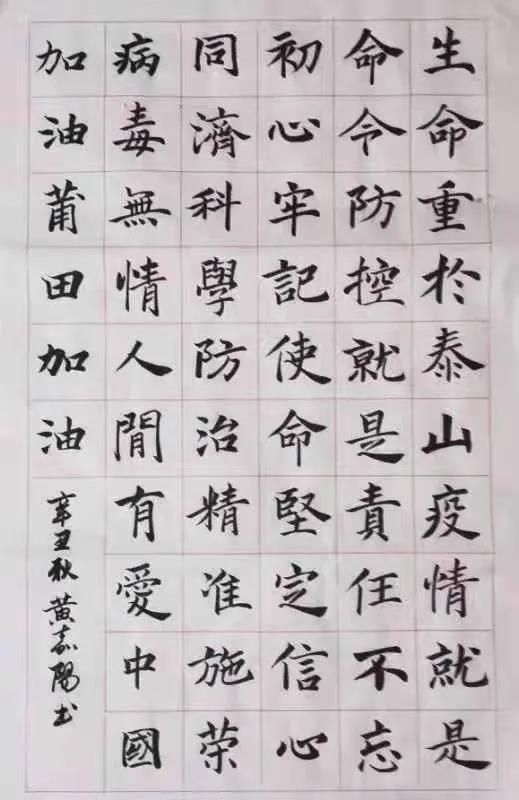 生命重於泰山疫情就是
命令防控就是責任不忘
初心牢記使命堅定信心
同濟科學防治精准施荣
病毒無情人間有愛中國
加油莆田加油
辛丑秋黄嘉陽书